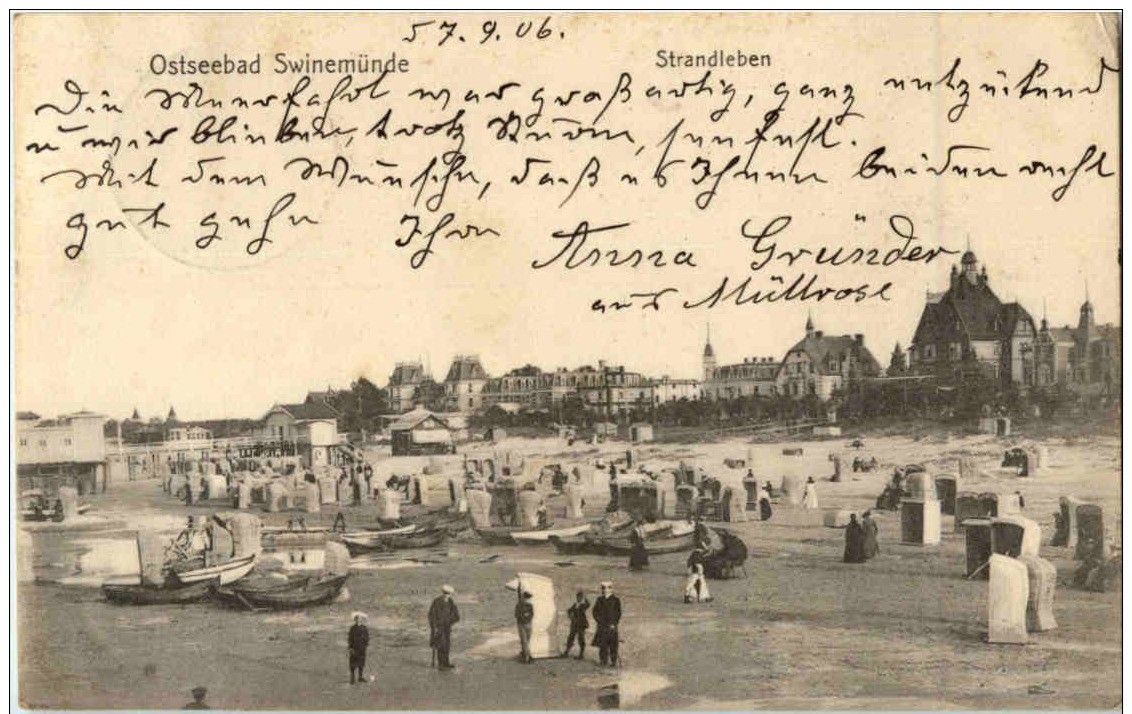 57.9.06.
Ostseebad Swinemünde Strandleben
Die Meerfahrt war großartig, ganz entzükend
u wir blieben, trotz Sturm, seefest.
Mit dem Wunsche, daß es Ihnen beiden recht
gut gehe Ihre Anna Gründer
aus Müllrose